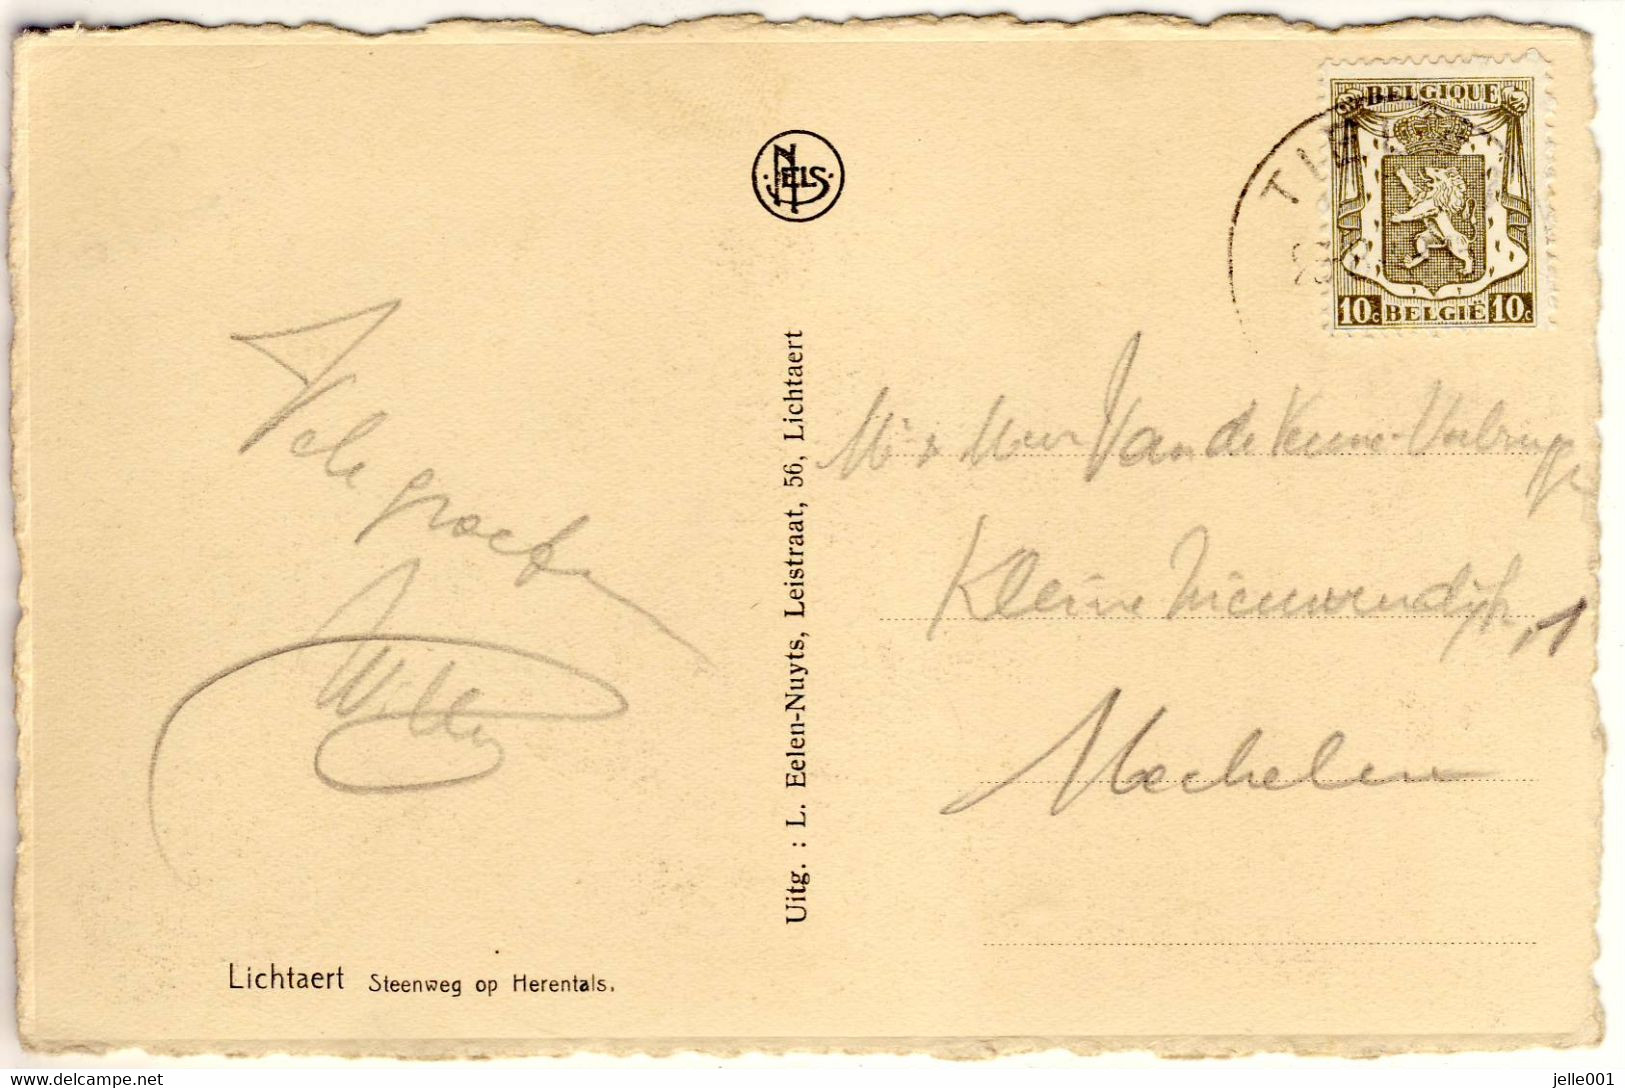 BELGIQUE
10c BELGIË 10c
NELS
Vele
groeten
Willy
Uitg. : L. Eelen-Nuyts, Leistraat, 56, Lichtaert
Mr & Mevr Van de Venne-Verbruggen
Kleine Nieuwendijk, 1
Mechelen
Lichtaert Steenweg op Herentals.
delcampe.net
jelle001